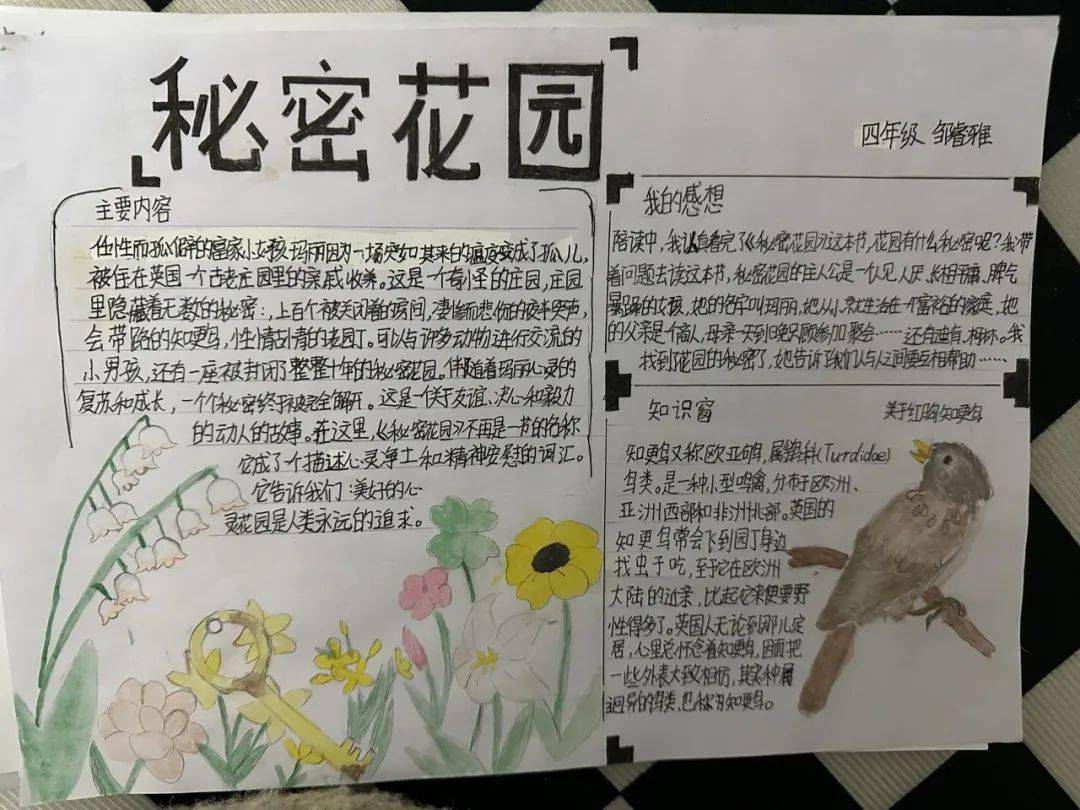 秘密花园
四年级 邹睿雅
主要内容
任性而孤僻的富家小女孩玛丽因为一场突如其来的瘟疫变成了孤儿,
被住在英国一个古老庄园里的亲戚收养。这是一个奇怪的庄园,庄园
里隐藏着无数的秘密:,上百个被关闭着的房间,凄惨而悲伤的夜半哭声,
会带路的知更鸟,性情古怪的老园丁。可以与许多动物进行交流的
小男孩,还有一座被封闭了整整十年的秘密花园。伴随着玛丽心灵的
复苏和成长,一个个秘密终于被完全解开。这是一个关于友谊、决心和毅力
的动人的故事。在这里,《秘密花园》不再是一书的名称
它成了个描述心灵净土和精神安慰的词汇。
它告诉我们:美好的心
灵花园是人类永远的追求。
我的感想
陪读中,我认真看完了《秘密花园》这本书,花园有什么秘密呢?我带
着问题去读这本书,秘密花园的主人公是一个人见人厌,长相平庸、脾气
暴躁的女孩,她的名字叫玛丽,她从小就生活在一个富裕的家庭,她
的父亲是个商人,母亲一天到晚只顾参加聚会……还有迪肯、柯林。我
找到花园的秘密了,她告诉我们人与人之间要互相帮助……
知识窗
关于红胸知更鸟
知更鸟又称欧亚鸲,属鸫科(Turdidae)
鸟类。是一种小型鸣禽,分布于欧洲、
亚洲西部和非洲北部。英国的
知更鸟常会飞到园丁身边
找虫子吃,至于它在欧洲
大陆的近亲,比起它来便要野
性得多了。英国人无论到哪儿定
居,心里总怀念着知更鸟,因而把
一些外表大致相仿,其实种属
迥异的鸟类,也称为知更鸟。